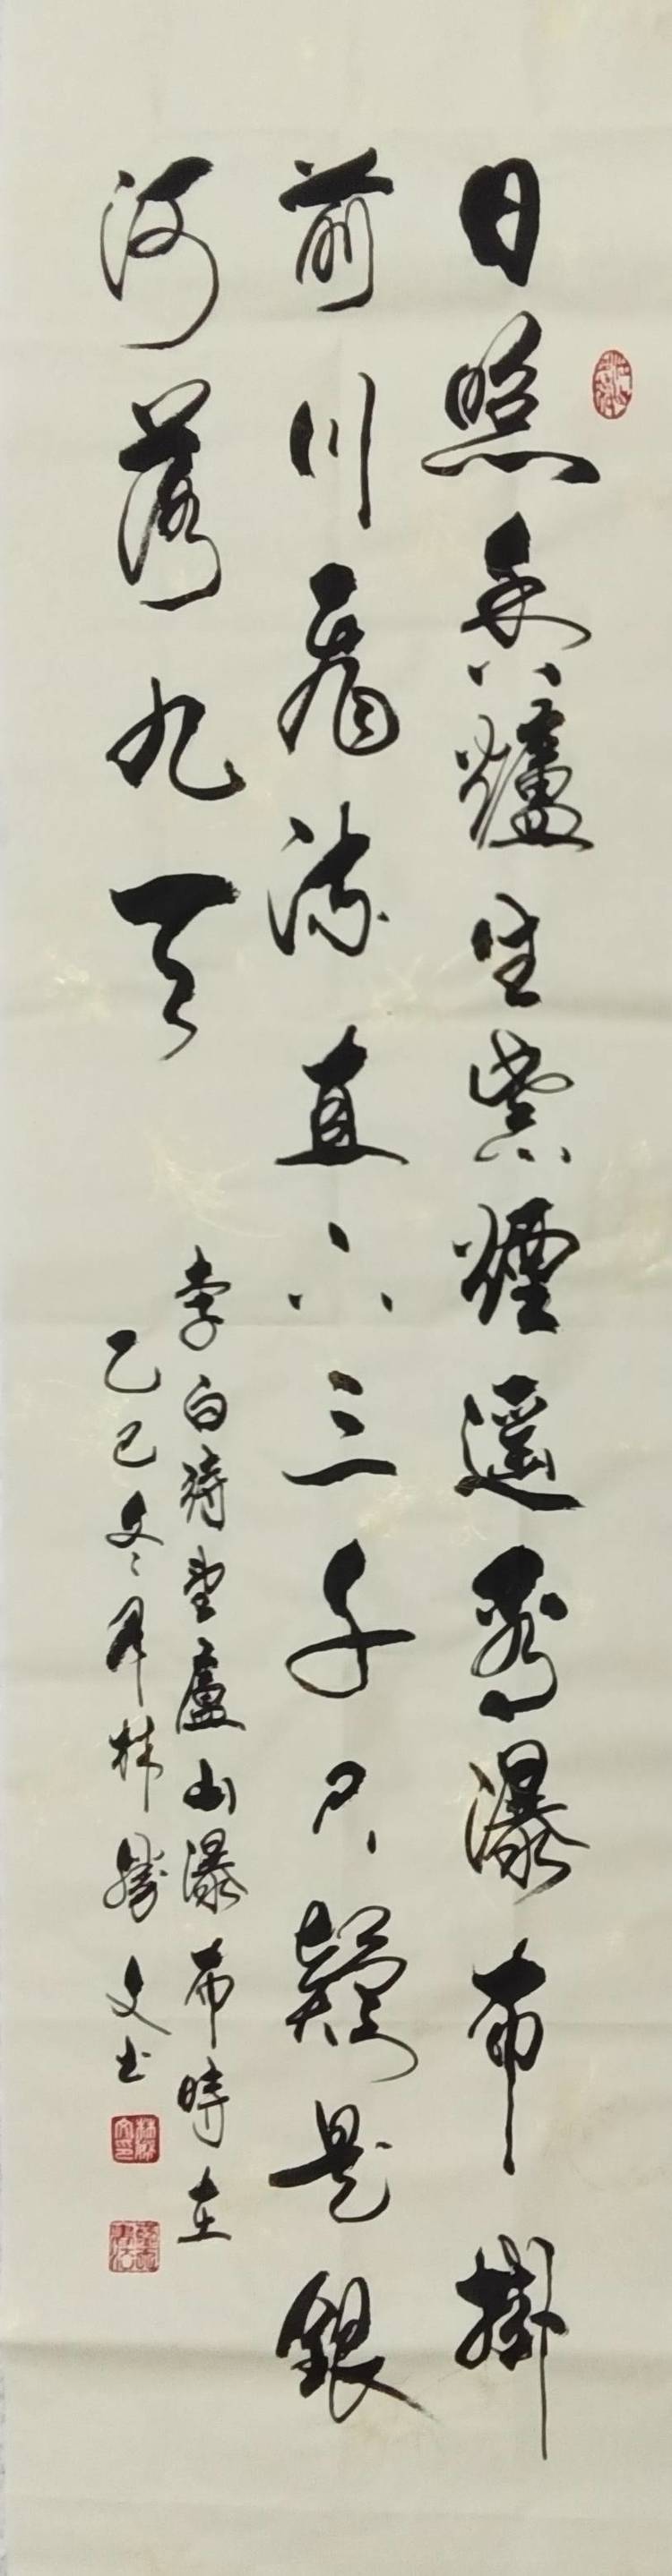 日照香爐生紫煙遥看瀑布掛
前川飛流直下三千尺疑是銀
河落九天
李白詩望廬山瀑布時在
乙巳冬月林勝文书